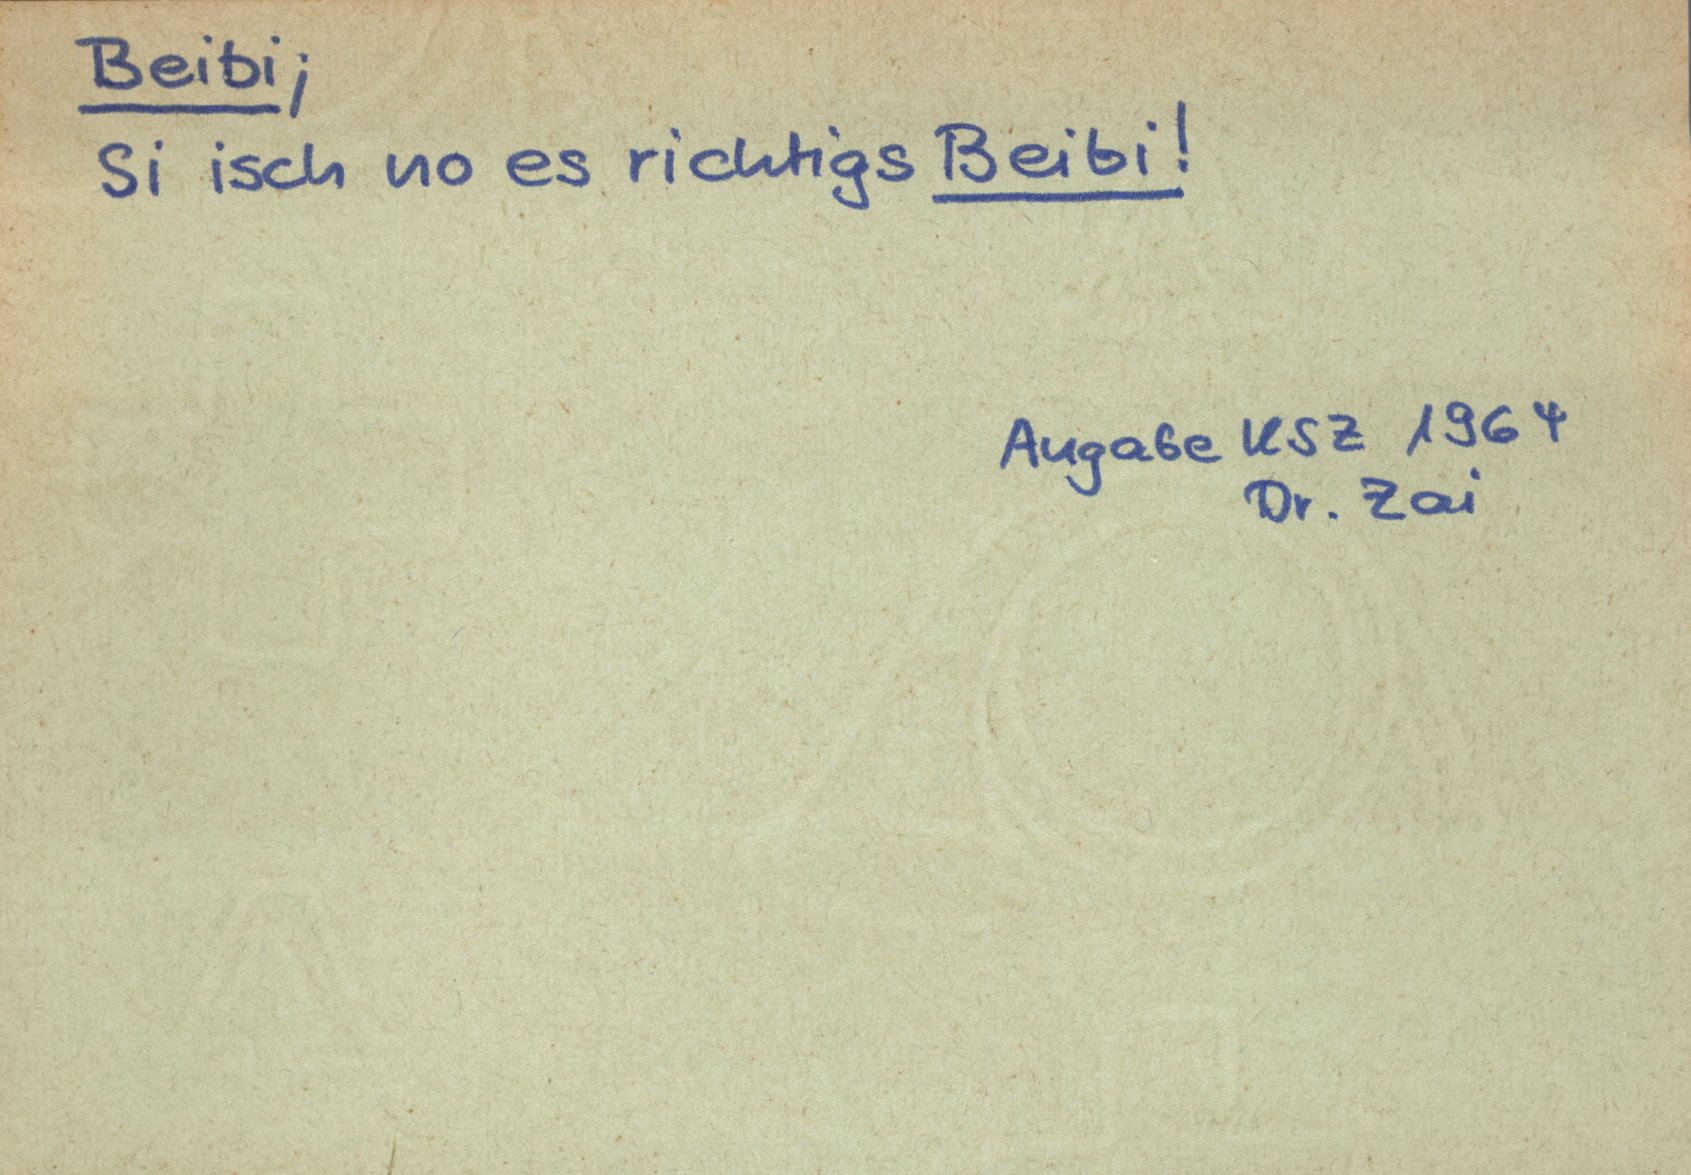 Beibi;
Si isch no es richtigs Beibi!
Angabe KSZ 1964
Dr. Zai